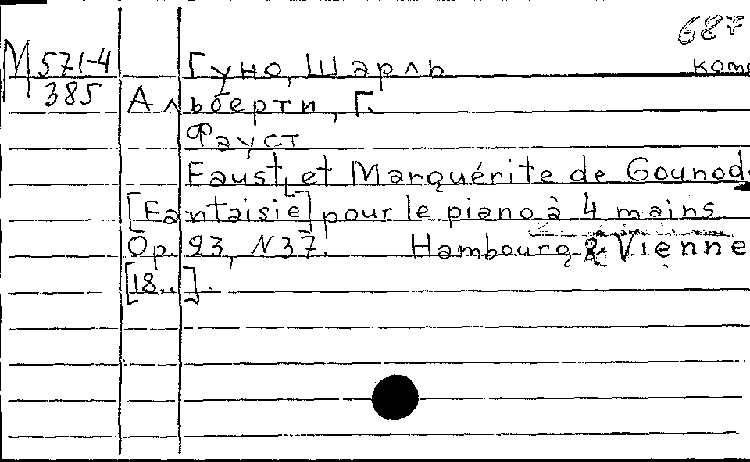 687
М 571-4
385
Гуно, Шарль комп
Альберти, Г.
Фауст
Faust et Marquérite de Gounod.
[Fantaisie] pour le piano à 4 mains
Op. 93, N 37. Hambourg & Vienne
[18..].